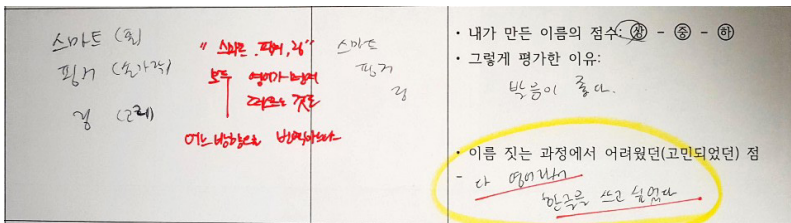 스마트 (폰)
핑거 (손가락)
링 (고리)
" 스마트, 핑거, 링"
모두 영어가 먼저
떠오르는 것을
어느 방향으로
스마트
핑거
링
• 내가 만든 이름의 점수: 상 - 중 - 하
• 그렇게 평가한 이유:
발음이 좋다.
• 이름 짓는 과정에서 어려웠던(고민되었던) 점
- 다 영어라서
한글을 쓰고 싶었다